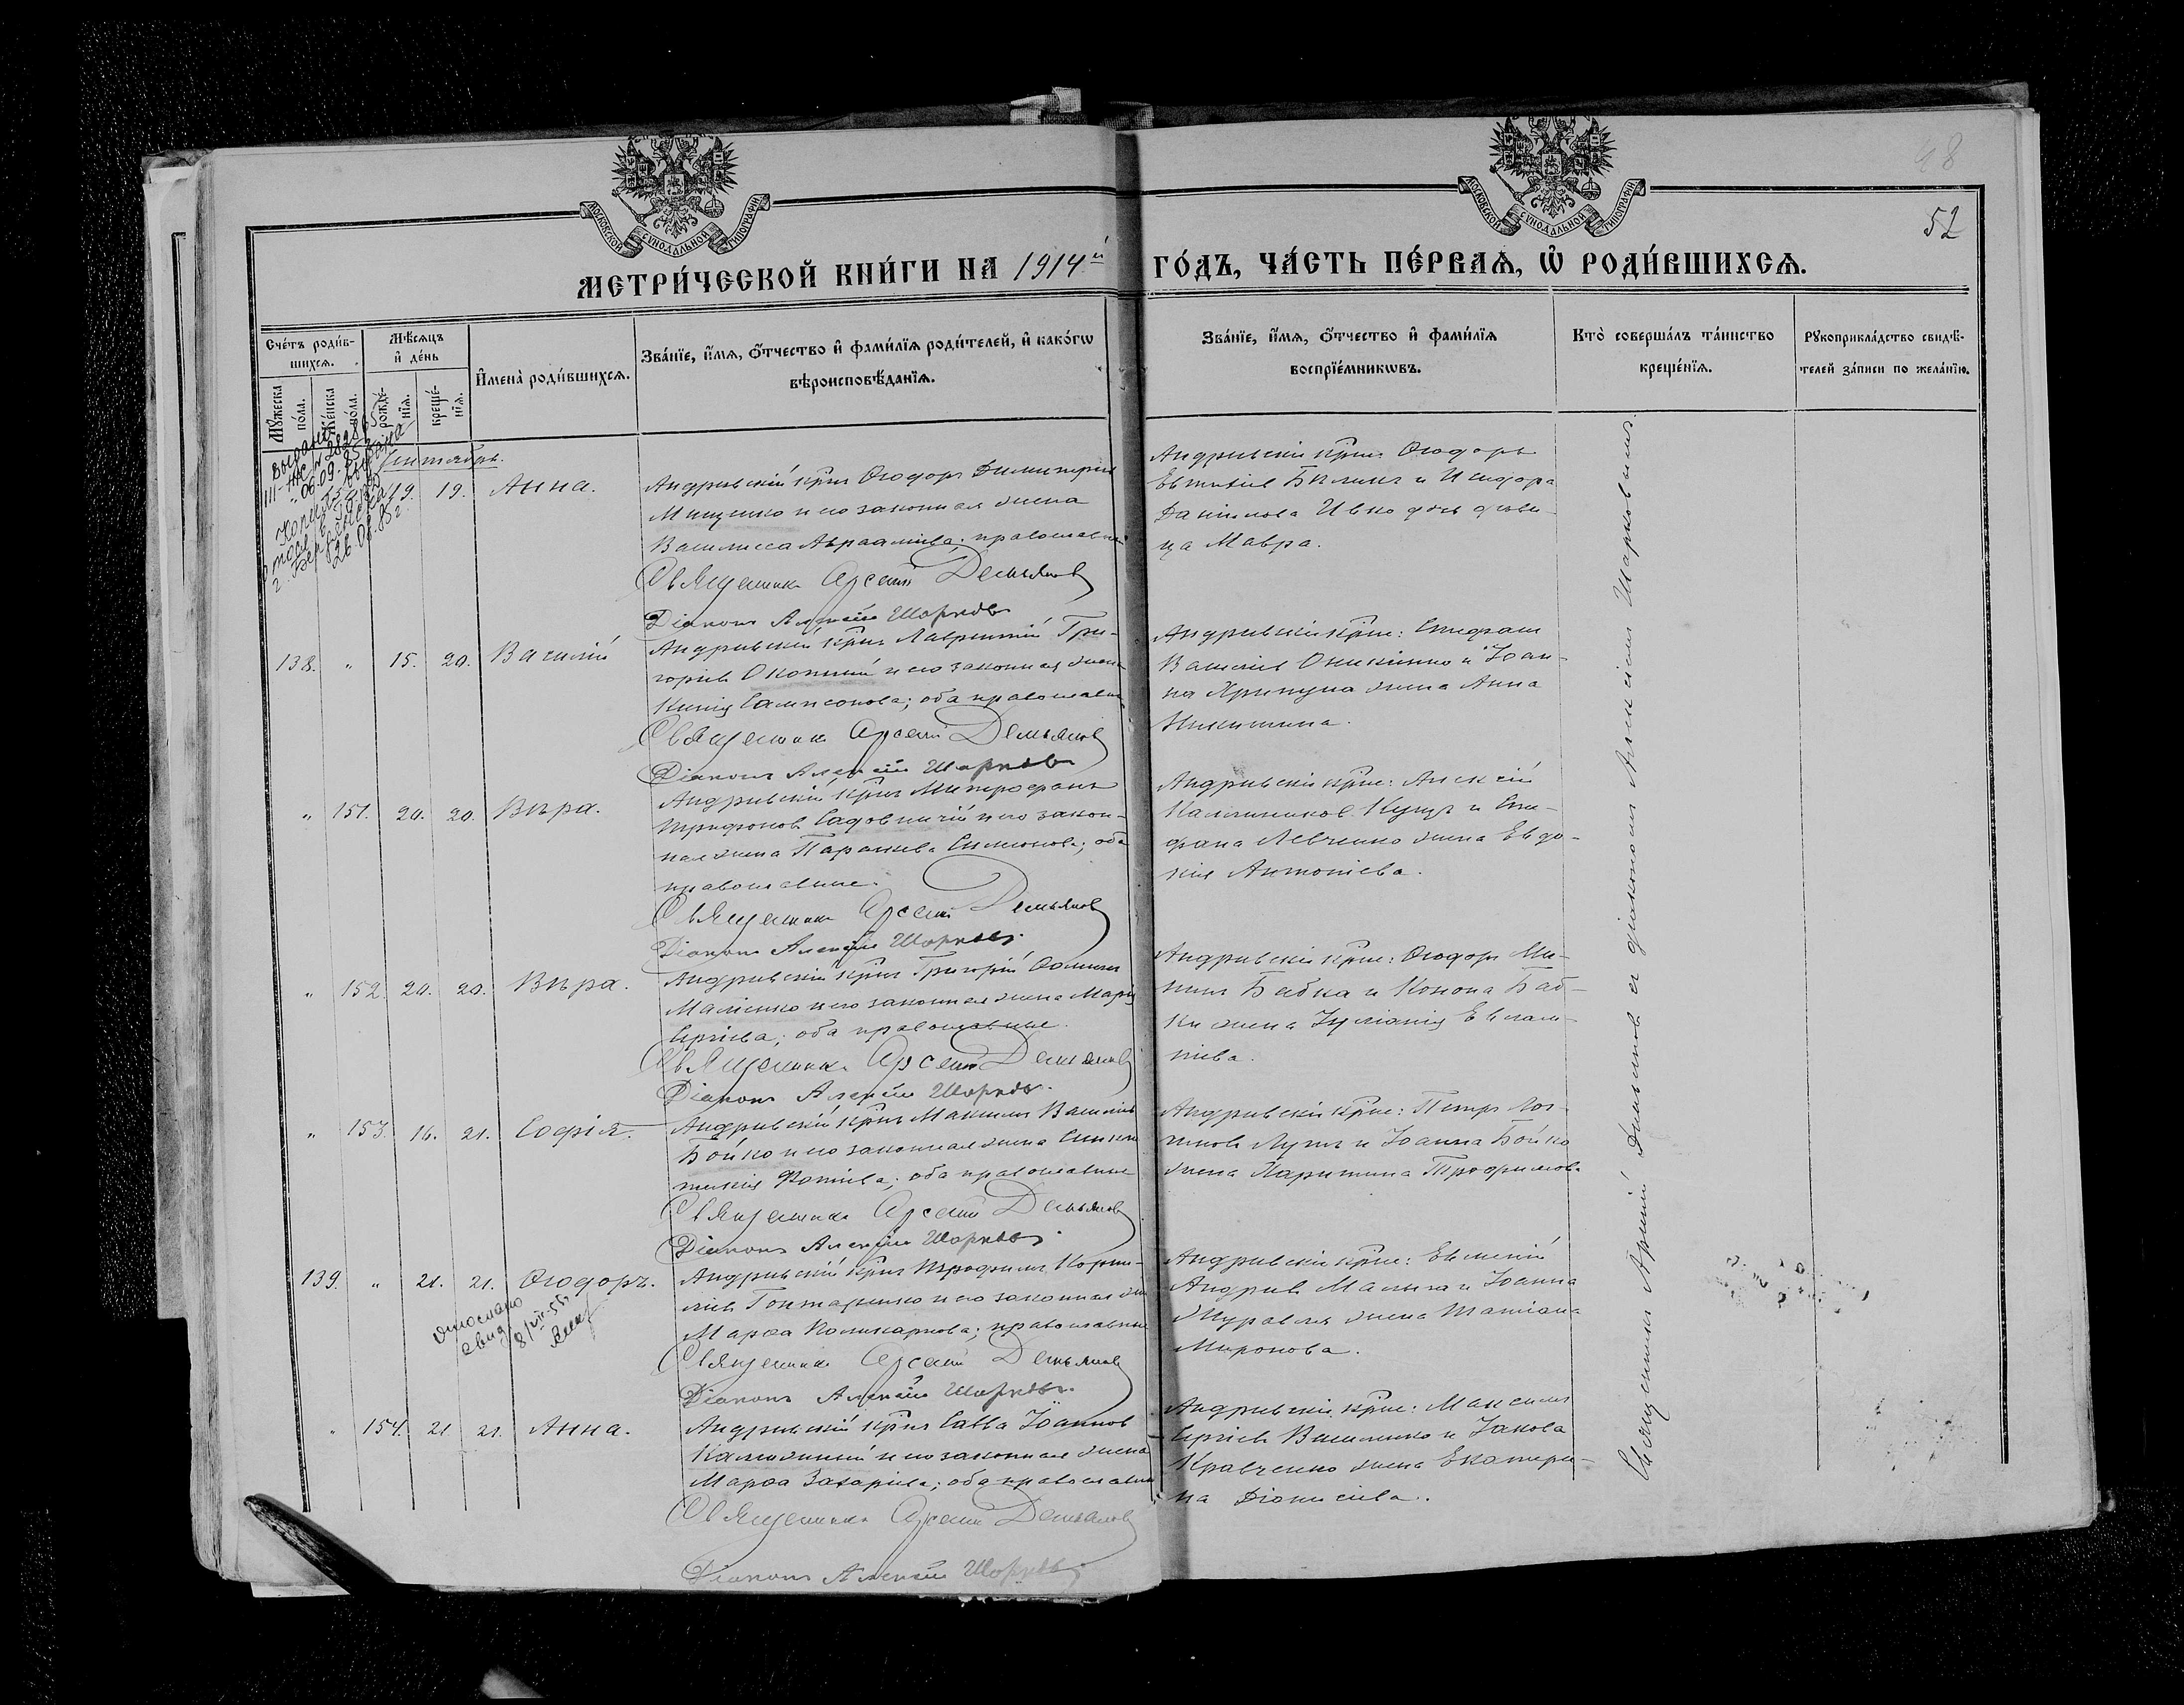 98
52
МОСКОВСКОЙ СѴНОДАЛЬНОЙ ТИПОГРАФІИ
МОСКОВСКОЙ СѴНОДАЛЬНОЙ ТИПОГРАФІИ
МЕТРИ́ЧЕСКОЙ КНИ́ГИ НА 1914й ГО́ДЪ, ЧА́СТЬ ПЕ́РВАѦ, Ѡ҆ РОДИ́ВШИХСѦ.
Сче́тъ роди́в-
шихсѧ.
Мꙋ́жеска по́ла.
Же́нска по́ла.
Мѣ́сѧцъ и҆ де́нь
рожде́-
нїѧ.
креще́-
нїѧ.
И҆мена̀ роди́вшихсѧ.
Зва́нїе, и҆́мѧ, ѻ҆́тчество и҆ фами́лїѧ роди́телей, и҆ како́гѡ
вѣроисповѣ́данїѧ.
Зва́нїе, и҆́мѧ, ѻ҆́тчество и҆ фами́лїѧ
воспрїе́мникѡвъ.
Кто̀ соверша́лъ та́инство
креще́нїѧ.
Рꙋкоприкла́дство свидѣ́-
телей за́писи по жела́нїю.
Сентябрь.
19. 19. Анна.
Андреевскій крест. Ѳеодоръ Димитріев
Мищенко и его законная жена
Василисса Аврааміева; православные
Священникъ Арсеній Демьянов
Діаконъ Алексій Шарков
Андреевскіе крне: Ѳеодоръ
Евтихіев и Исидора
Данилова Ивко дочь деви-
ца Мавра.
138. " 15. 20. Василій
Андреевскій крест. Лаврентій Гри-
горіев и его законная жена
Сампсонова; оба православные
Священникъ Арсеній Демьянов
Діаконъ Алексій Шарков
Андреевскіе крне: Епифанъ
Василіев и Іоан-
на Хрипуна жена Анна
Никитина.
" 151. 20. 20. Вѣра.
Андреевскій крест. Митрофанъ
Трифонов Садовничій и его закон-
ная жена Параскева Симеонова; оба
православные.
Священникъ Арсеній Демьянов
Діаконъ Алексій Шарков.
Андреевскіе крне: Алексій
Каллиников Куцъ и Епи-
фана Левченко жена Евдо-
кія Антоніева.
" 152. 20. 20. Вѣра.
Андреевскій крест. Григорій Ѳомин
и его законная жена Марія
Сергіева; оба православные.
Священникъ Арсеній Демьянов
Діаконъ Алексій Шарков.
Андреевскіе крне: Ѳеодоръ Ми-
нин Бабка и Конона Баб-
ки жена Іуліанія Евлам-
піева.
" 153. 16. 21. Софія.
Андреевскій крест. Максимъ Василіев
Бойко и его законная жена Синкли-
тикія Фотіева; оба православные
Священникъ Арсеній Демьянов
Діаконъ Алексій Шарков.
Андреевскіе крне: Петръ Лог-
гинов и Іоанна Бойко
жена Харитина Трофимова
139. " 21. 21. Ѳеодоръ.
Отослано
свид.
8/VII-55г.
Андреевскій крест. Корни-
ліев Гонтаренко и его законная же
Марѳа Поликарпова; православные
Священникъ Арсеній Демьянов
Діаконъ Алексій Шарков.
Андреевскіе крне: Евмений
Андреев и Іоанна
Журавля жена Татіана
Миронова.
" 154. 21. 21. Анна.
Андреевскій крест. Савва Іоаннов
и его законная жена
Марѳа Захаріева; оба православные
Священникъ Арсеній Демьянов
Діаконъ Алексій Шарков.
Андреевскіе крне: Максимъ
Сергіев Василенко и Іакова
Кравченко жена Екатери-
на Діонисіева.
Священникъ Арсеній Демьянов съ діакономъ Алексіемъ Шарковымъ.